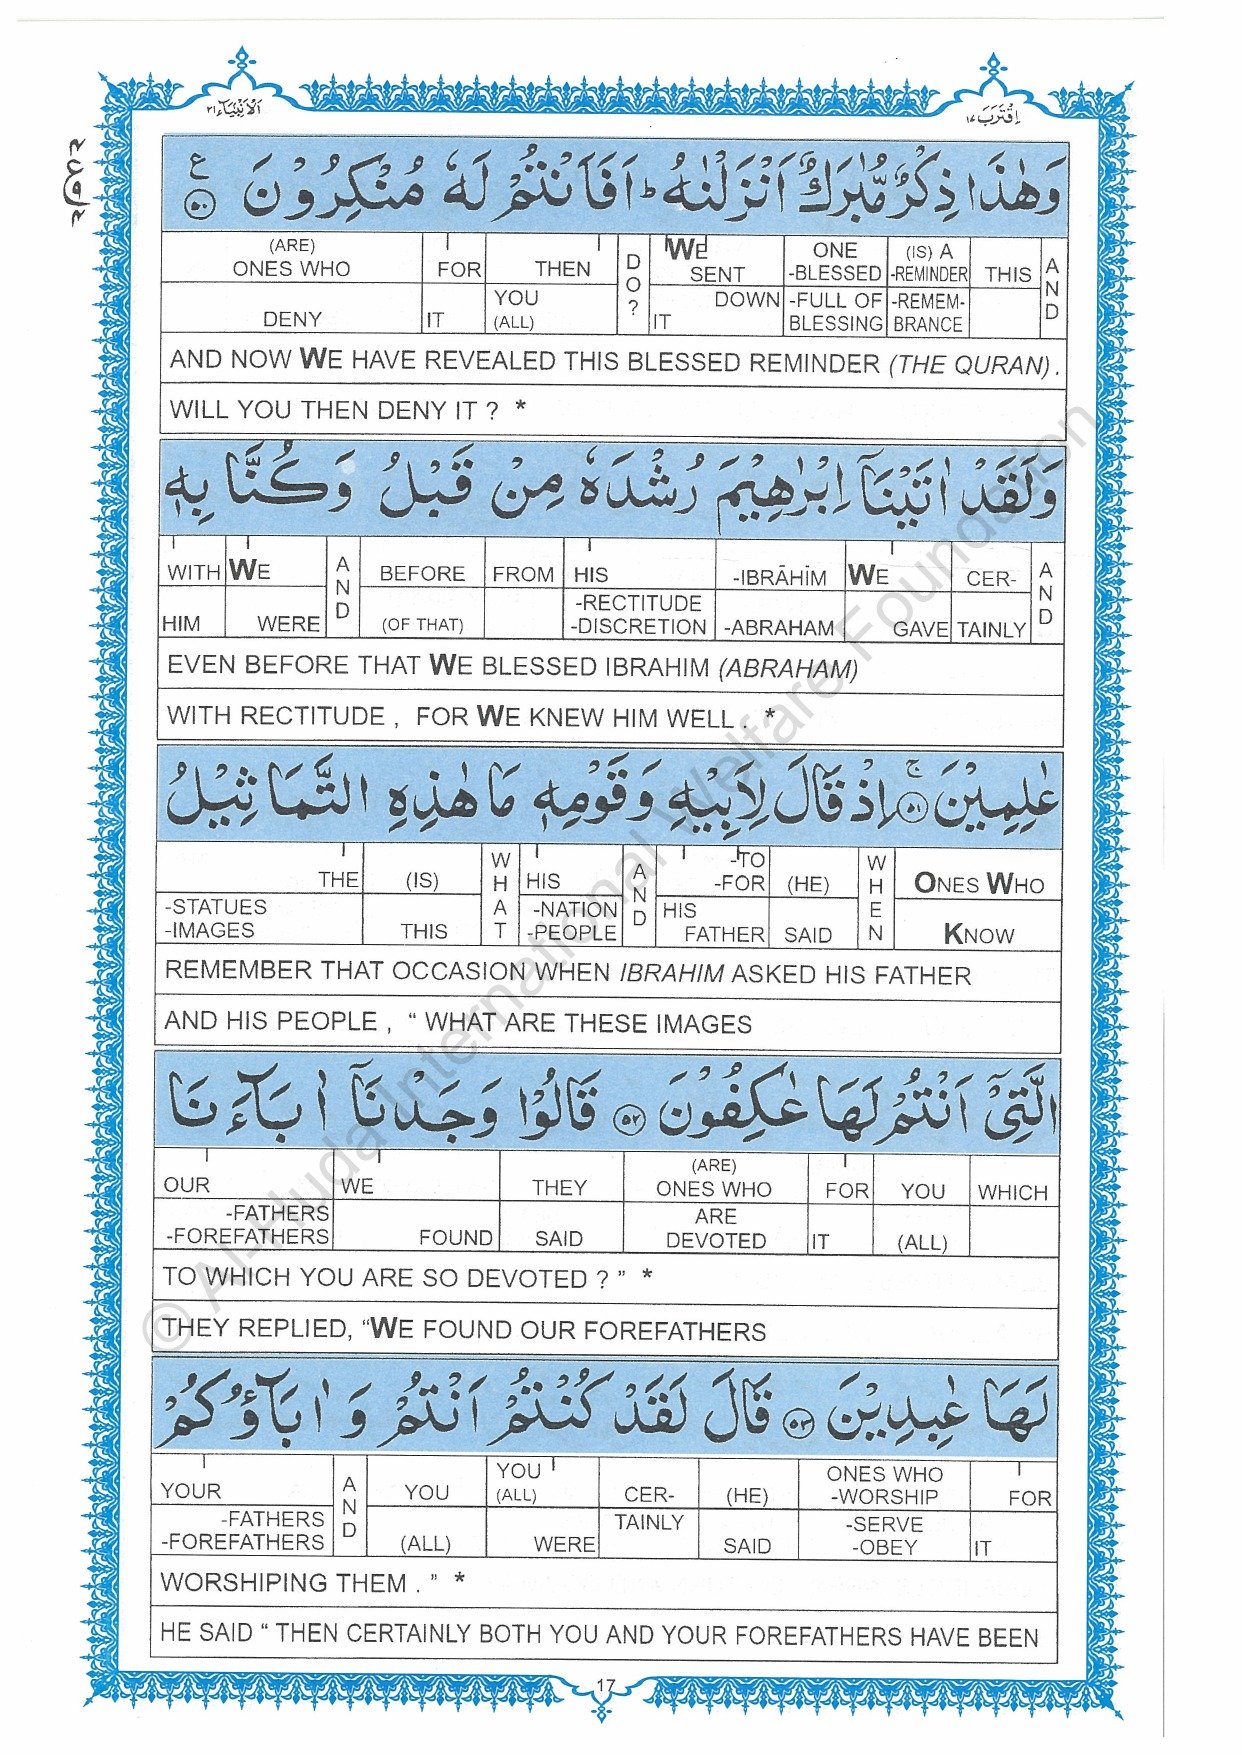 اَلْاَنْبِيَآء ٢١
اِقْتَرَبَ ١٧
وَهٰذَا ذِكْرٌ مُّبٰرَكٌ اَنْزَلْنٰهُ ؕ اَفَاَنْتُمْ لَهٗ مُنْكِرُوْنَ ﴿٥٠﴾ ع
(ARE) ONES WHO DENY | FOR IT | THEN YOU (ALL) | DO? | WE SENT DOWN IT | ONE -BLESSED -FULL OF BLESSING | (IS) A -REMINDER -REMEM-BRANCE | THIS | AND
AND NOW WE HAVE REVEALED THIS BLESSED REMINDER (THE QURAN) .
WILL YOU THEN DENY IT ? *
وَلَقَدْ اٰتَيْنَاۤ اِبْرٰهِيْمَ رُشْدَهٗ مِنْ قَبْلُ وَكُنَّا بِهٖ
WITH HIM | WE WERE | AND | BEFORE (OF THAT) | FROM | HIS -RECTITUDE -DISCRETION | -IBRĀHĪM -ABRAHAM | WE GAVE | CER-TAINLY | AND
EVEN BEFORE THAT WE BLESSED IBRAHIM (ABRAHAM)
WITH RECTITUDE , FOR WE KNEW HIM WELL . *
عٰلِمِيْنَ ﴿٥١﴾ ج اِذْ قَالَ لِاَبِيْهِ وَقَوْمِهٖ مَا هٰذِهِ التَّمَاثِيْلُ
THE -STATUES -IMAGES | (IS) THIS | WHAT | HIS -NATION -PEOPLE | AND | -TO -FOR HIS FATHER | (HE) SAID | WHEN | ONES WHO KNOW
REMEMBER THAT OCCASION WHEN IBRAHIM ASKED HIS FATHER
AND HIS PEOPLE , “ WHAT ARE THESE IMAGES
الَّتِيْۤ اَنْتُمْ لَهَا عٰكِفُوْنَ ﴿٥٢﴾ قَالُوْا وَجَدْنَاۤ اٰبَآءَنَا
OUR -FATHERS -FOREFATHERS | WE FOUND | THEY SAID | (ARE) ONES WHO ARE DEVOTED | FOR IT | YOU (ALL) | WHICH
TO WHICH YOU ARE SO DEVOTED ? ” *
THEY REPLIED, “WE FOUND OUR FOREFATHERS
لَهَا عٰبِدِيْنَ ﴿٥٣﴾ قَالَ لَقَدْ كُنْتُمْ اَنْتُمْ وَاٰبَآؤُكُمْ
YOUR -FATHERS -FOREFATHERS | AND | YOU (ALL) | YOU (ALL) WERE | CER-TAINLY | (HE) SAID | ONES WHO -WORSHIP -SERVE -OBEY | FOR IT
WORSHIPING THEM . ” *
HE SAID “ THEN CERTAINLY BOTH YOU AND YOUR FOREFATHERS HAVE BEEN
17
© Al-Huda International Welfare Foundation